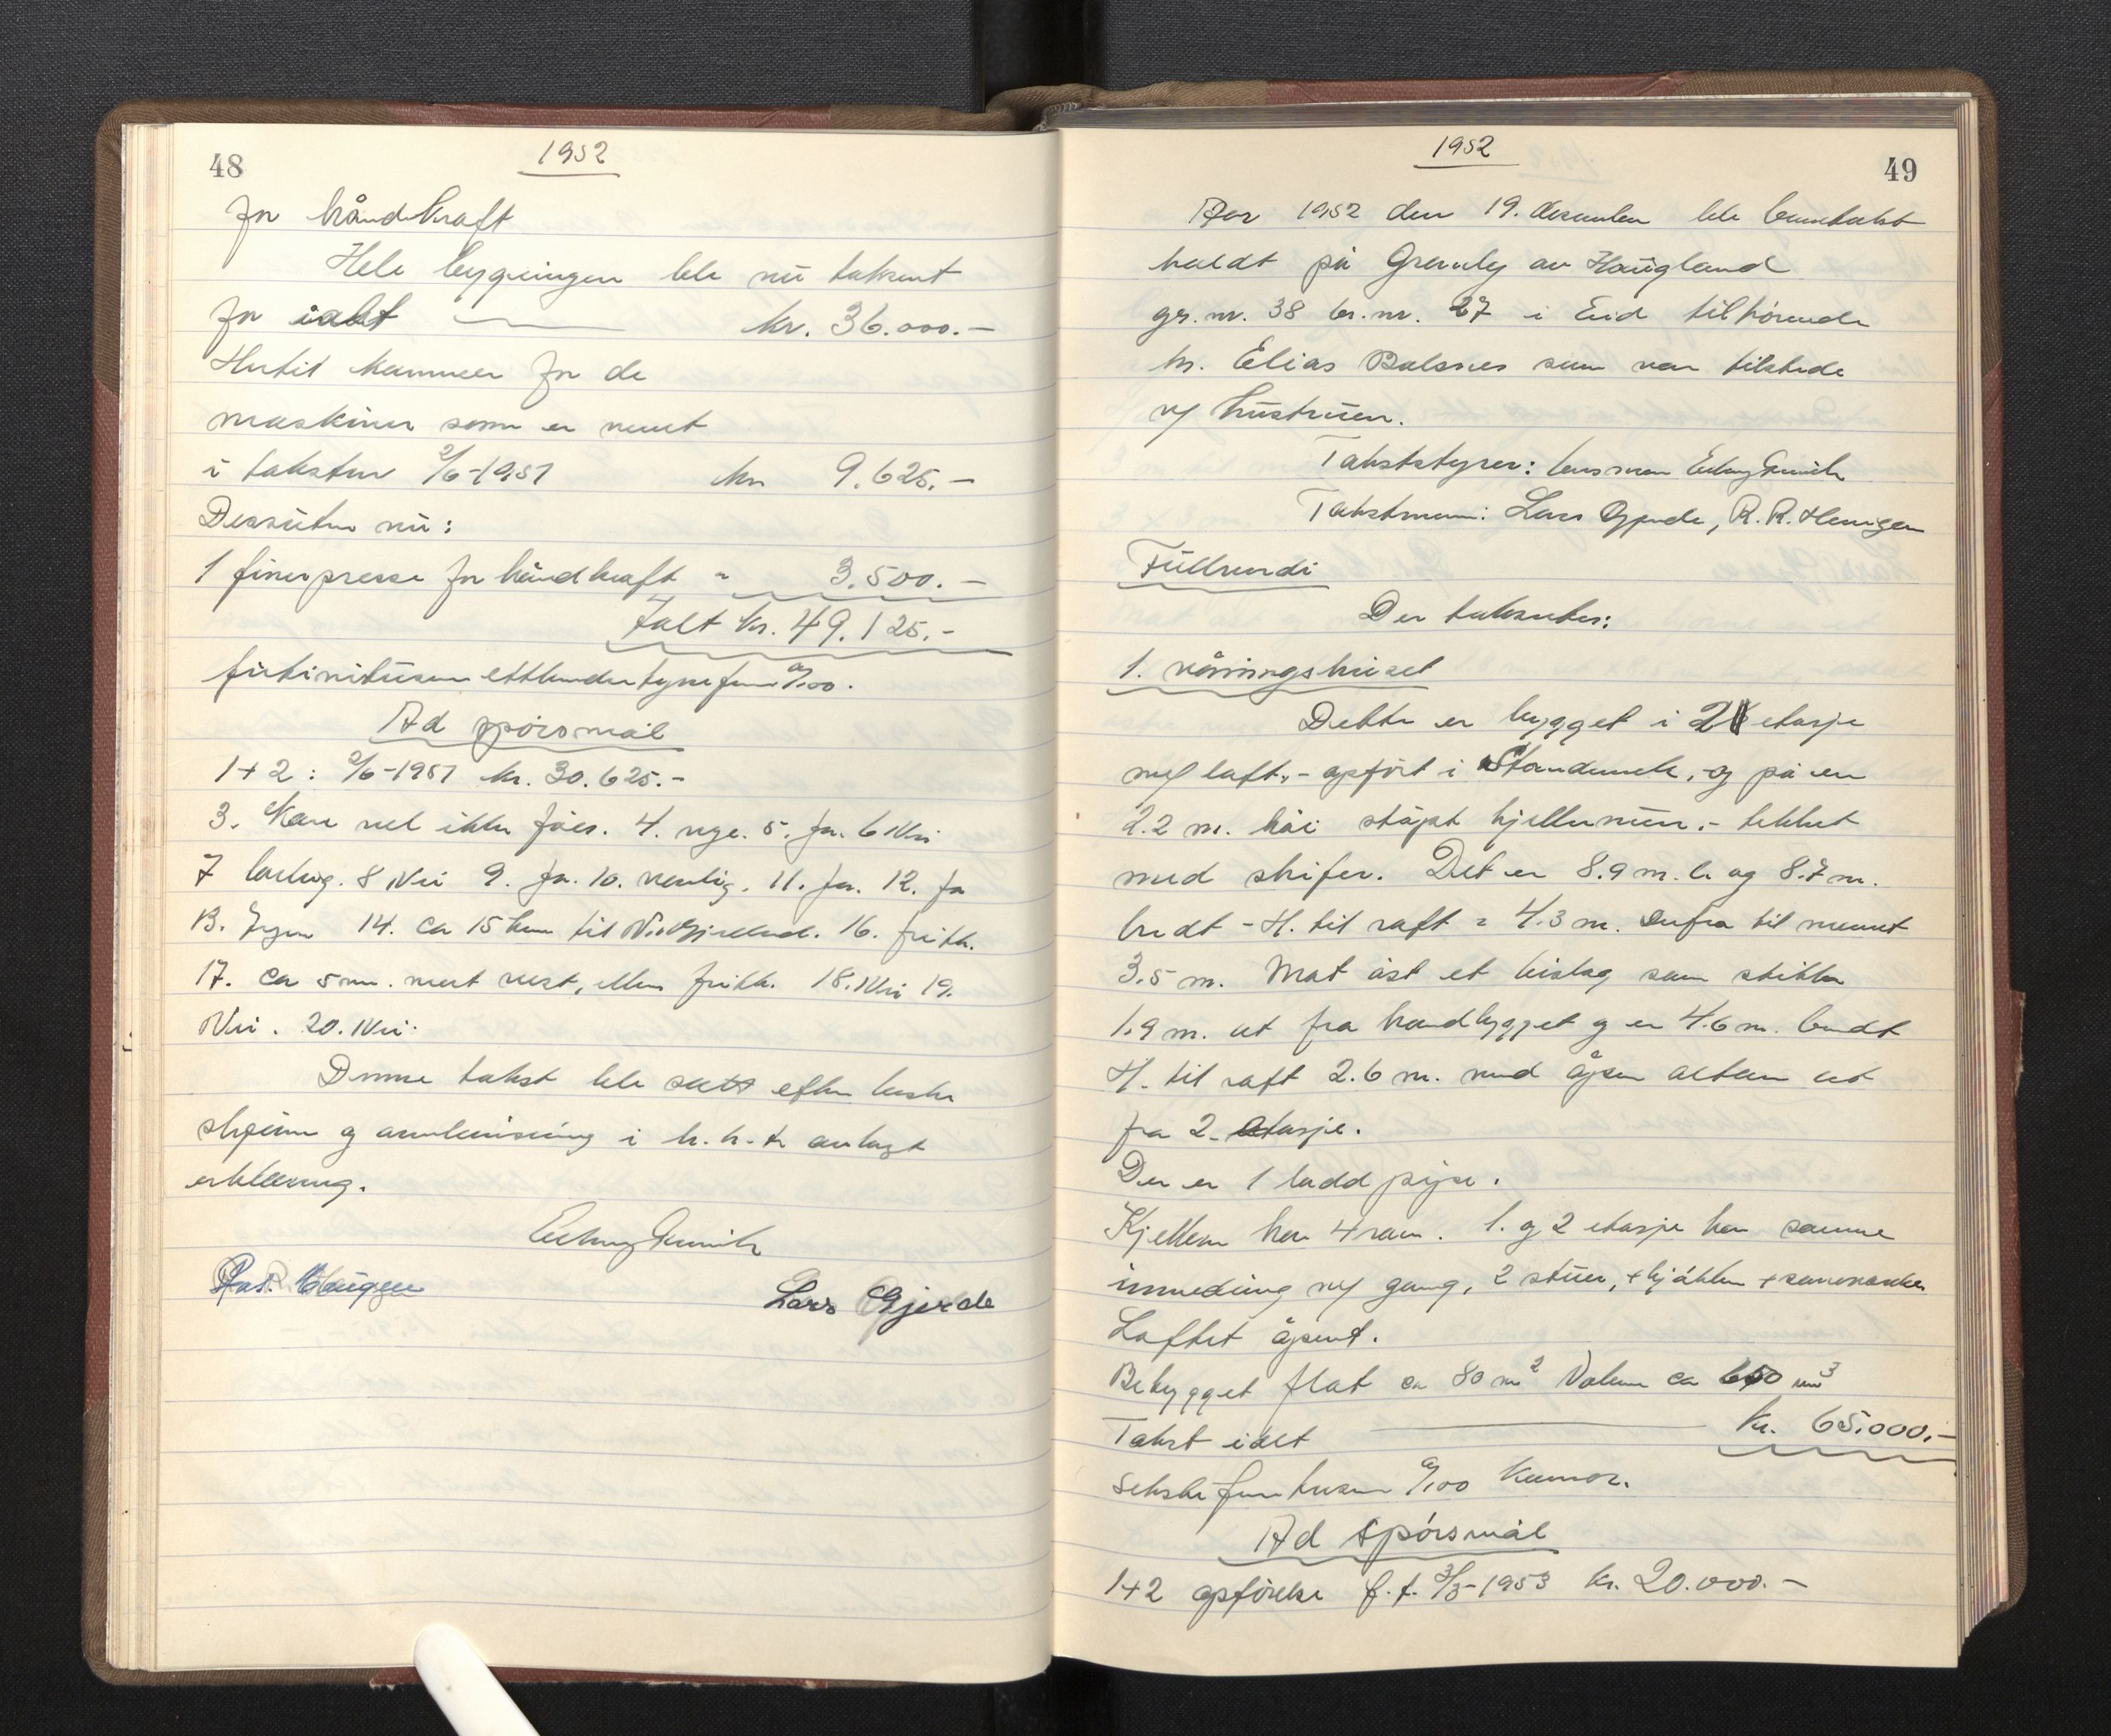 48
1952
for håndkraft
Hele bygningen ble nu taksert
for ialt kr. 36.000.-
Hertil kommer for de
maskiner som er nevnt
i taksten 2/6-1951 kr 9.625.-
Dessuten nu:
1 finerpresse for håndkraft " 3.500.-
Ialt kr. 49.125.-
førtinitusen etthundretyvefem 0/100.
Ad spørsmål
1+2: 2/6-1951 kr. 30.625.-
3. Kan vel ikke fåes. 4. nye. 5. Ja. 6 Nei
7 8 Nei 9. Ja. 10. vanlig. 11. Ja. 12. Ja
13. Ingen 14. ca 15 km til 16. fritt.
17. ca 5 m. mot vest, ellers fritt. 18. Nei 19.
Nei. 20. Nei.
Denne takst ble satt efter beste
skjønn og overbevisning i h.h. t. avlagt
erklæring.
Lars Gjerde
49
1952
Aar 1952 den 19. desember ble branntakst
holdt på Grønly av Haugland
gr. nr. 38 br. nr. 27 i Eid tilhørende
hr. Elias Balsnes som var tilstede
v/ hustruen.
Takststyrer: lensmann
Takstmenn: Lars Gjerde, R. R. Haugen
Der takseres:
1. våningshuset
Dette er bygget i 2 etasje
m/ loft, - opført i Standverk, og på en
2.2 m. høi støpt kjellermur. - tekket
med skifer. Det er 8.9 m. l. og 8.7 m.
bredt - H. til raft = 4.3 m. Derfra til mønet
3.5 m. Mot øst et bislag som stikker
1.9 m. ut fra hovedbygget og er 4.6 m. bredt
H. til raft 2.6 m. med åpen altan ut
fra 2. etasje.
Der er 1 ladd pipe.
Kjelleren har 4 rom. 1. og 2 etasje har samme
innredning m/ gang, 2 stuer, + kjøkken + soveværelse
Loftet åpent.
Bebygget flat ca 80 m2 Volum ca 600 m3
Takst ialt kr. 65.000.-
Sekstifem tusen 0/100 kroner.
Ad spørsmål
1+2 opførelse f. f. 3/3-1953 kr. 20.000.-